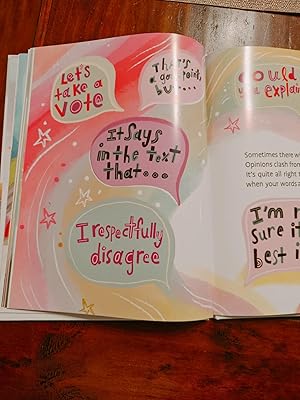 Let's
take a
Vote
That's
a good point,
but...
It Says
in the text
that...
I respectfully
disagree
Could
you explain
Sometimes there
Opinions clash
It's quite all right
when your words
I'm
sure it
best